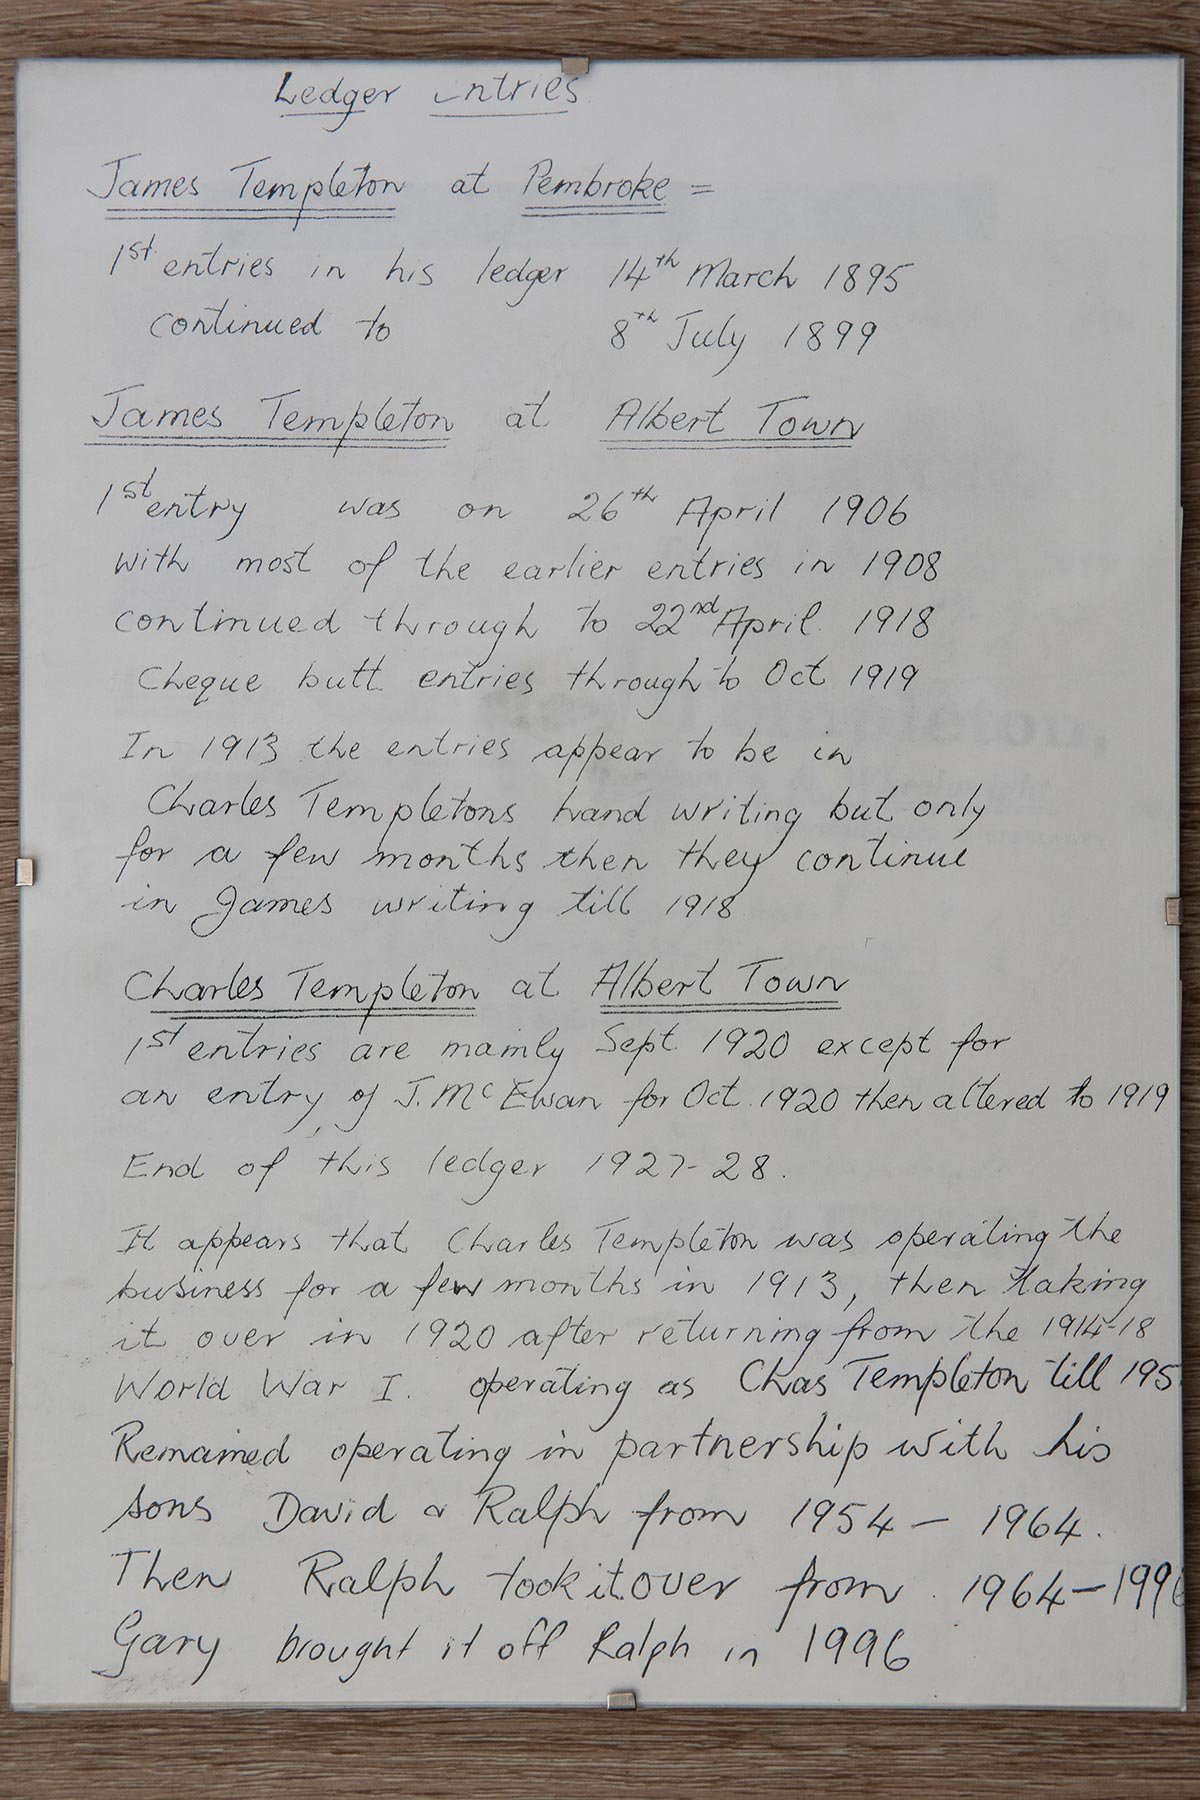 Ledger Entries
James Templeton at Pembroke =
1st entries in his ledger 14th March 1895
continued to 8th July 1899
James Templeton at Albert Town
1st entry was on 26th April 1906
with most of the earlier entries in 1908
continued through to 22nd April 1918
Cheque butt entries through to Oct 1919
In 1913 the entries appear to be in
Charles Templetons hand writing but only
for a few months then they continue
in James writing till 1918
Charles Templeton at Albert Town
1st entries are mainly Sept 1920 except for
an entry of J. McEwan for Oct 1920 then altered to 1919
End of this ledger 1927-28.
It appears that Charles Templeton was operating the
business for a few months in 1913, then taking
it over in 1920 after returning from the 1914-18
World War I. operating as Chas Templeton till 195
Remained operating in partnership with his
sons David & Ralph from 1954 - 1964.
Then Ralph took it over from 1964-1996
Gary brought it off Ralph in 1996